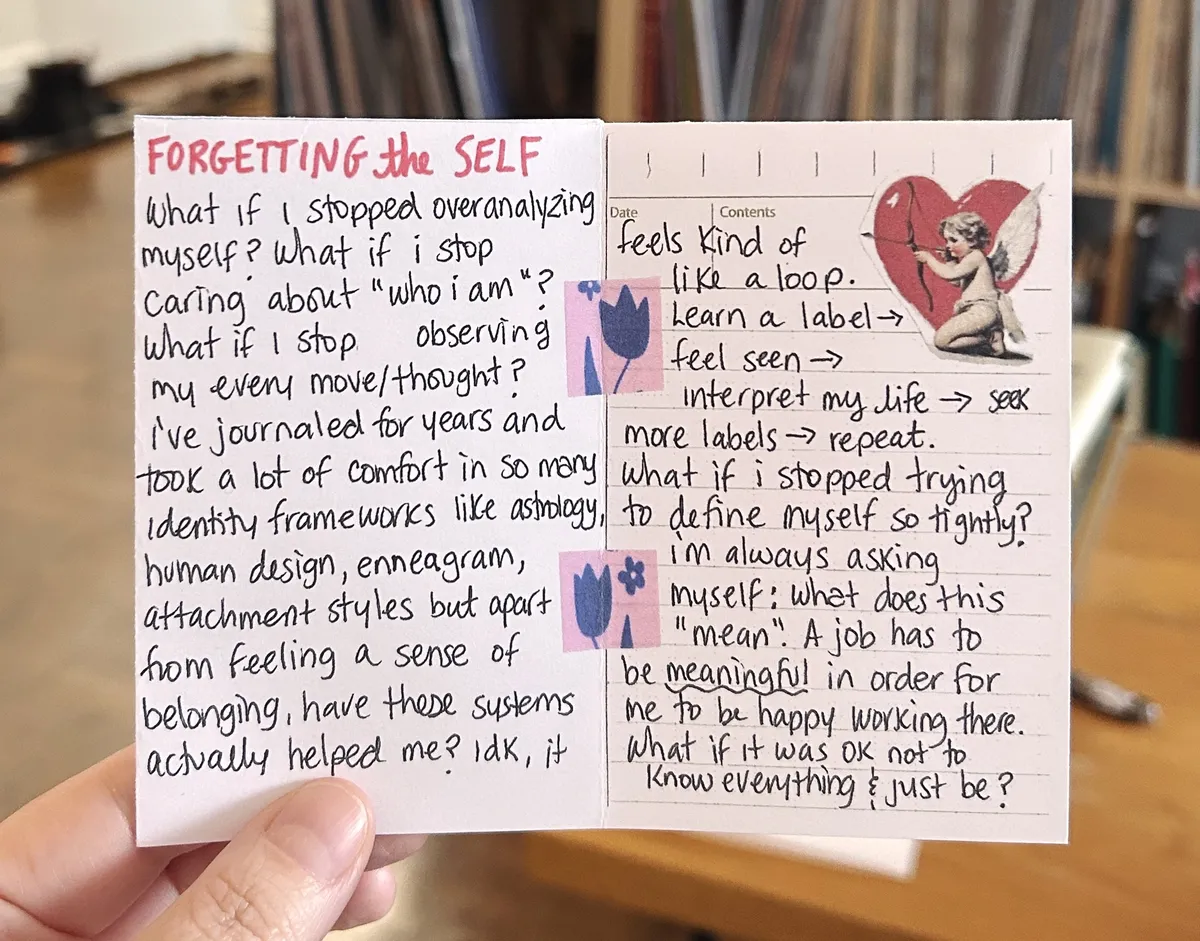 FORGETTING the SELF
What if I stopped overanalyzing
myself? What if i stop
caring about "who i am"?
What if I stop observing
my every move/thought?
I've journaled for years and
took a lot of comfort in so many
identity frameworks like astrology,
human design, enneagram,
attachment styles but apart
from feeling a sense of
belonging, have these systems
actually helped me? Idk, it
Date Contents
feels kind of
like a loop.
Learn a label →
feel seen →
interpret my life → seek
more labels → repeat.
What if i stopped trying
to define myself so tightly?
i'm always asking
myself: what does this
"mean". A job has to
be meaningful in order for
me to be happy working there.
What if it was OK not to
know everything & just be?